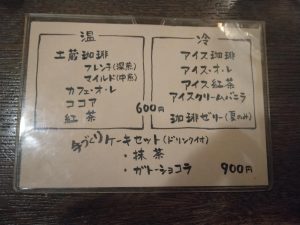 温
土蔵珈琲
フレンチ(深煎)
マイルド(中煎)
カフェ・オ・レ
ココア
紅茶
600円
冷
アイス珈琲
アイス・オ・レ
アイス紅茶
アイスクリームバニラ
珈琲ゼリー(夏のみ)
手づくりケーキセット(ドリンク付)
・抹茶
・ガトーショコラ
900円